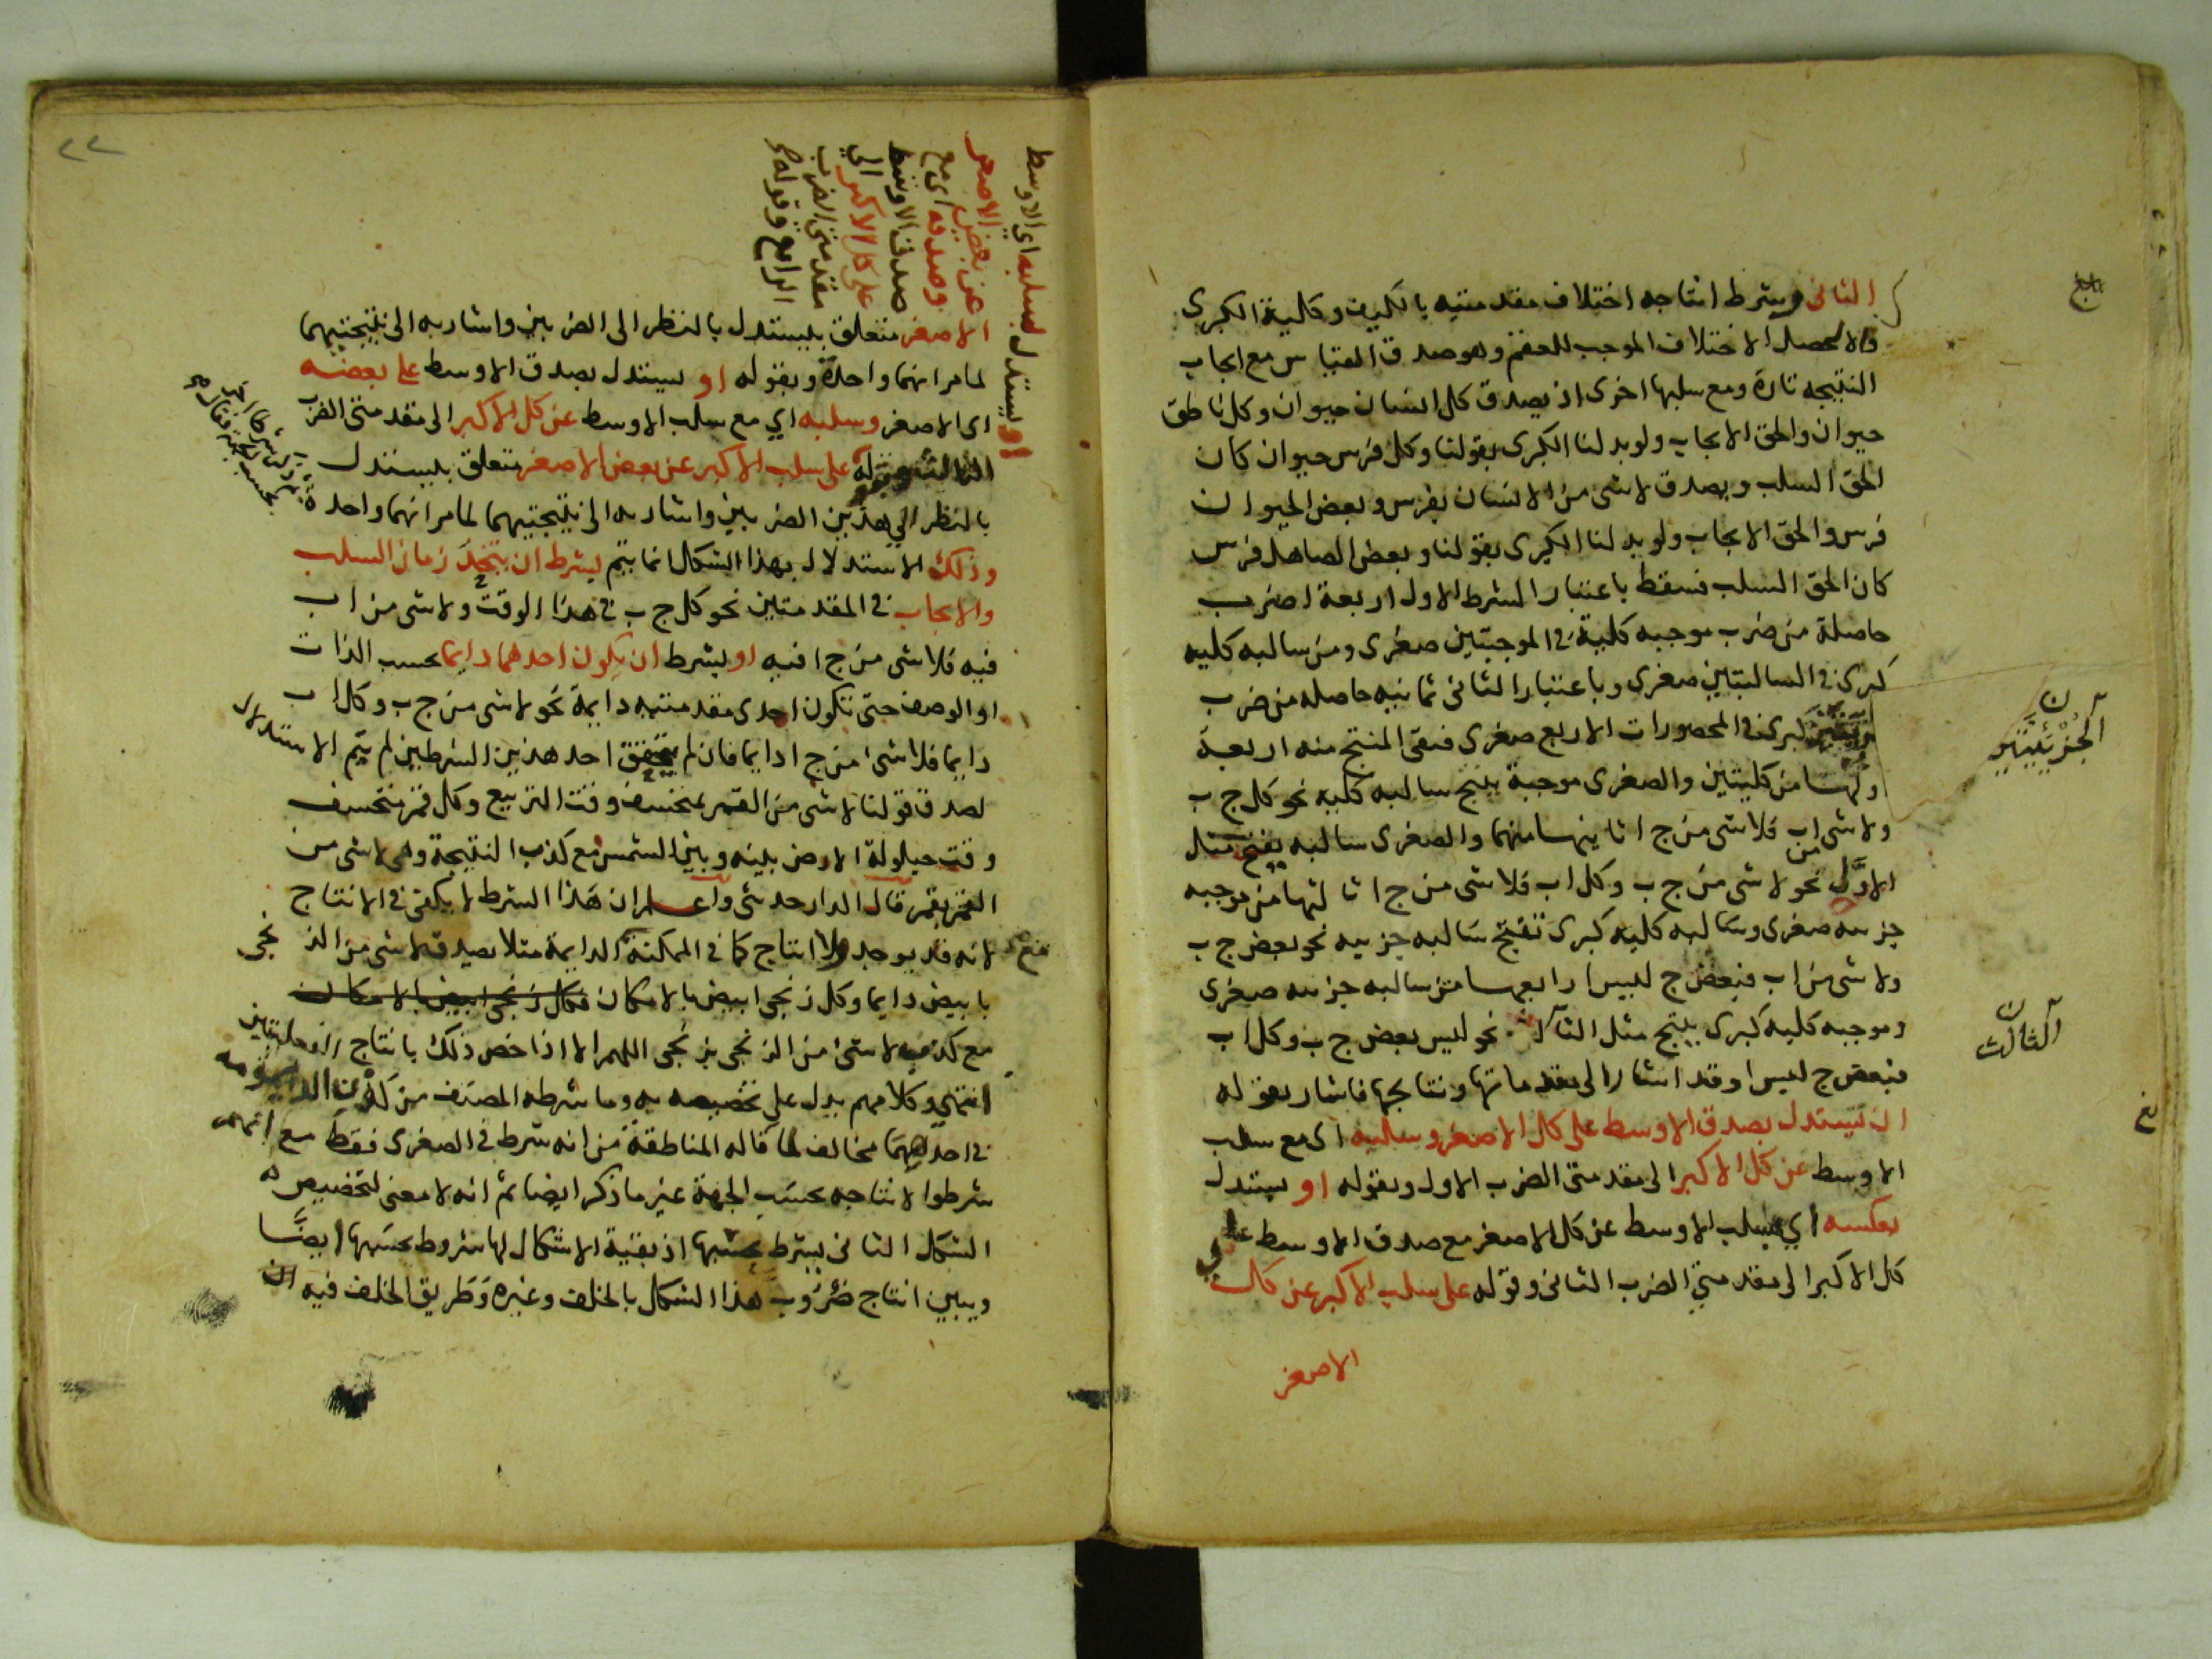 الثانى ويشرط انتاجه اختلاف مقدمتيه بالكيف وكلية الكبرى
والا لحصل الاختلاف الموجب للعقم وهو صدق القياس مع ايجاب
النتيجه تارة ومع سلبها اخرى اذ يصدق كل انسان حيوان وكل ناطق
حيوان والحق الايجاب ولو بدلنا الكبرى بقولنا وكل فرس حيوان كان
الحق السلب ويصدق لاشى من الانسان بفرس وبعض الحيوان
فرس والحق الايجاب ولو بدلنا الكبرى بقولنا وبعض الصاهل فرس
كان الحق السلب فسقط باعتبار الشرط الاول اربعة اضرب
حاصلة من ضرب موجبه كلية فى الموجبتين صغرى ومن سالبه كليه
كبرى فى السالبتين صغرى وباعتبار الثانى ثمانيه حاصله من ضرب
الجزئيتين
كبرى فى المحصورات الاربع صغرى فبقى المنتج منه اربعة
اولها من كليتين والصغرى موجبة ينتج سالبه كليه نحو كل ج ب
ولاشى من اب فلاشى من ج ا ثانيها منهما والصغرى سالبه ينتج مثل
الاول نحو لاشى من ج ب وكل اب فلاشى من ج ا ثالثها من موجبه
جزييه صغرى وسالبه كليه كبرى تنتج سالبه جزييه نحو بعض ج ب
ولاشى من اب فبعض ج ليس ا رابعها من سالبه جزييه صغرى
وموجبه كليه كبرى ينتج مثل الثالث نحو ليس بعض ج ب وكل اب
الثالث
فبعض ج ليس ا وقد اشار الى مقدماتها ونتايجها فاشار بقوله
ان تستدل بصدق الاوسط على كل الاصغر وسلبه اى مع سلب
الاوسط عن كل الاكبر الى مقدمتى الضرب الاول وبقوله او يستدل
بعكسه اي بسلب الاوسط عن كل الاصغر مع صدق الاوسط على
كل الاكبر الى مقدمتي الضرب الثانى وقوله على سلب الاكبر عن كل
الاصغر
او يستدل بسلبه اي الاوسط
عن بعض الاصغر
وصدقه اى مع
صدق الاوسط
على كل الاكبر الي
مقدمتى الضرب
الرابع وقوله
الاصغر متعلق بيستدل بالنظر الى الضربين واشار به الى نتيجتيهما
لما مر انهما واحدة وبقوله او يستدل بصدق الاوسط على بعضه
اى الاصغر وسلبه اي مع سلب الاوسط عن كل الاكبر الى مقدمتى الضرب
الثالث وقوله على سلب الاكبر عن بعض الاصغر متعلق بيستدل
بالنظر الي هذين الضربين واشار به الى نتيجتيهما لما مر انهما واحدة
وذلك الاستدلال بهذا الشكل انما يتم بشرط ان يتحد زمان السلب
والايجاب فى المقدمتين نحو كل ج ب فى هذا الوقت ولاشى من اب
فيه فلاشى من ج ا فيه او بشرط ان يكون احدهما دايما بحسب الذات
او الوصف حتى تكون احدى مقدمتيه دايمة نحو لاشى من ج ب وكل اب
دايما فلاشئ من ج ا دايما فان لم يتحقق احد هذين الشرطين لم يتم الاستدلال
لصدق قولنا لاشى من القمر بمنخسف وقت التربيع وكل قمر منخسف
وقت حيلولة الارض بينه وبين الشمس مع كذب النتيجة وهى لاشى من
القمر بقمر قال الدارحدثى واعلم ان هذا الشرط لا يكفى فى الانتاج
لانه قد يوجد ولا انتاج كما فى الممكنة الدايمة مثلا يصدق لاشى من الزنجى
بابيض دايما وكل زنجى ابيض بالامكان فكل زنجى ابيض بالامكان
مع كذب لاشئ من الزنجى بزنجى اللهم الا اذا خص ذلك بانتاج الفعليتين
انتهى وكلامهم يدل على تخصيصه به وما شرطه المصنف من كون الديمومه
فى احدهما مخالف لما قاله المناطقة من انه شرط فى الصغرى فقط مع انهم
شرطوا لانتاجه بحسب الجهة غير ما ذكر ايضا ثم انه لا معنى لتخصيص
الشكل الثانى بشرط بحسبها اذ بقية الاشكال لها شروط بحسبها ايضا
ويبين انتاج ضروب هذا الشكل بالخلف وغيره وطريق الخلف فيه ان